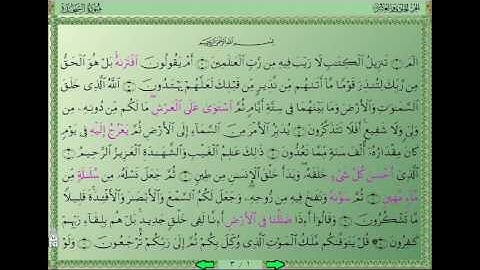 سُورَةُ السَّجْدَةِ
الجزء الحادي والعشرون
بِسْمِ اللَّهِ الرَّحْمَٰنِ الرَّحِيمِ
الٓمٓ ۝ تَنزِيلُ ٱلْكِتَٰبِ لَا رَيْبَ فِيهِ مِن رَّبِّ ٱلْعَٰلَمِينَ ۝ أَمْ يَقُولُونَ ٱفْتَرَىٰهُ بَلْ هُوَ ٱلْحَقُّ
مِن رَّبِّكَ لِتُنذِرَ قَوْمًا مَّآ أَتَىٰهُم مِّن نَّذِيرٍ مِّن قَبْلِكَ لَعَلَّهُمْ يَهْتَدُونَ ۝ ٱللَّهُ ٱلَّذِى خَلَقَ
ٱلسَّمَٰوَٰتِ وَٱلْأَرْضَ وَمَا بَيْنَهُمَا فِى سِتَّةِ أَيَّامٍ ثُمَّ ٱسْتَوَىٰ عَلَى ٱلْعَرْشِ مَا لَكُم مِّن دُونِهِۦ مِن
وَلِىٍّ وَلَا شَفِيعٍ أَفَلَا تَتَذَكَّرُونَ ۝ يُدَبِّرُ ٱلْأَمْرَ مِنَ ٱلسَّمَآءِ إِلَى ٱلْأَرْضِ ثُمَّ يَعْرُجُ إِلَيْهِ فِى يَوْمٍ
كَانَ مِقْدَارُهُۥٓ أَلْفَ سَنَةٍ مِّمَّا تَعُدُّونَ ۝ ذَٰلِكَ عَٰلِمُ ٱلْغَيْبِ وَٱلشَّهَٰدَةِ ٱلْعَزِيزُ ٱلرَّحِيمُ ۝
ٱلَّذِىٓ أَحْسَنَ كُلَّ شَىْءٍ خَلَقَهُۥ وَبَدَأَ خَلْقَ ٱلْإِنسَٰنِ مِن طِينٍ ۝ ثُمَّ جَعَلَ نَسْلَهُۥ مِن سُلَٰلَةٍ مِّن
مَّآءٍ مَّهِينٍ ۝ ثُمَّ سَوَّىٰهُ وَنَفَخَ فِيهِ مِن رُّوحِهِۦ وَجَعَلَ لَكُمُ ٱلسَّمْعَ وَٱلْأَبْصَٰرَ وَٱلْأَفْـِٔدَةَ قَلِيلًا
مَّا تَشْكُرُونَ ۝ وَقَالُوٓا۟ أَءِذَا ضَلَلْنَا فِى ٱلْأَرْضِ أَءِنَّا لَفِى خَلْقٍ جَدِيدٍ بَلْ هُم بِلِقَآءِ رَبِّهِمْ
كَٰفِرُونَ ۝ قُلْ يَتَوَفَّىٰكُم مَّلَكُ ٱلْمَوْتِ ٱلَّذِى وُكِّلَ بِكُمْ ثُمَّ إِلَىٰ رَبِّكُمْ تُرْجَعُونَ ۝ وَلَوْ
٣ / ١